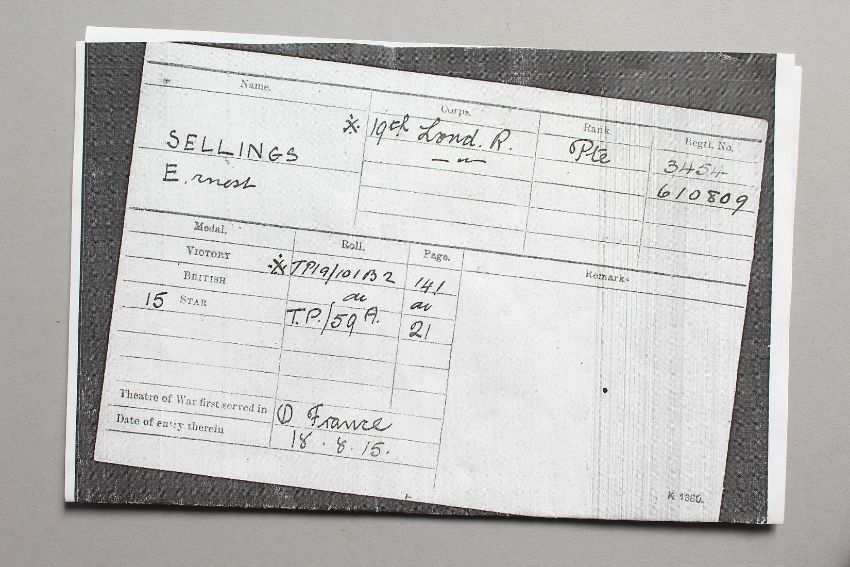 Name. Corps. Rank Regtl. No.
SELLINGS ※ 19th Lond. R. Pte 3454
E.rnest — " — 610809
Medal. Roll. Page. Remarks
VICTORY ※ TP19/101B2 141
BRITISH do do
15 STAR T.P./59A. 21
Theatre of War first served in ① France
Date of entry therein 18.8.15.
K 1380.